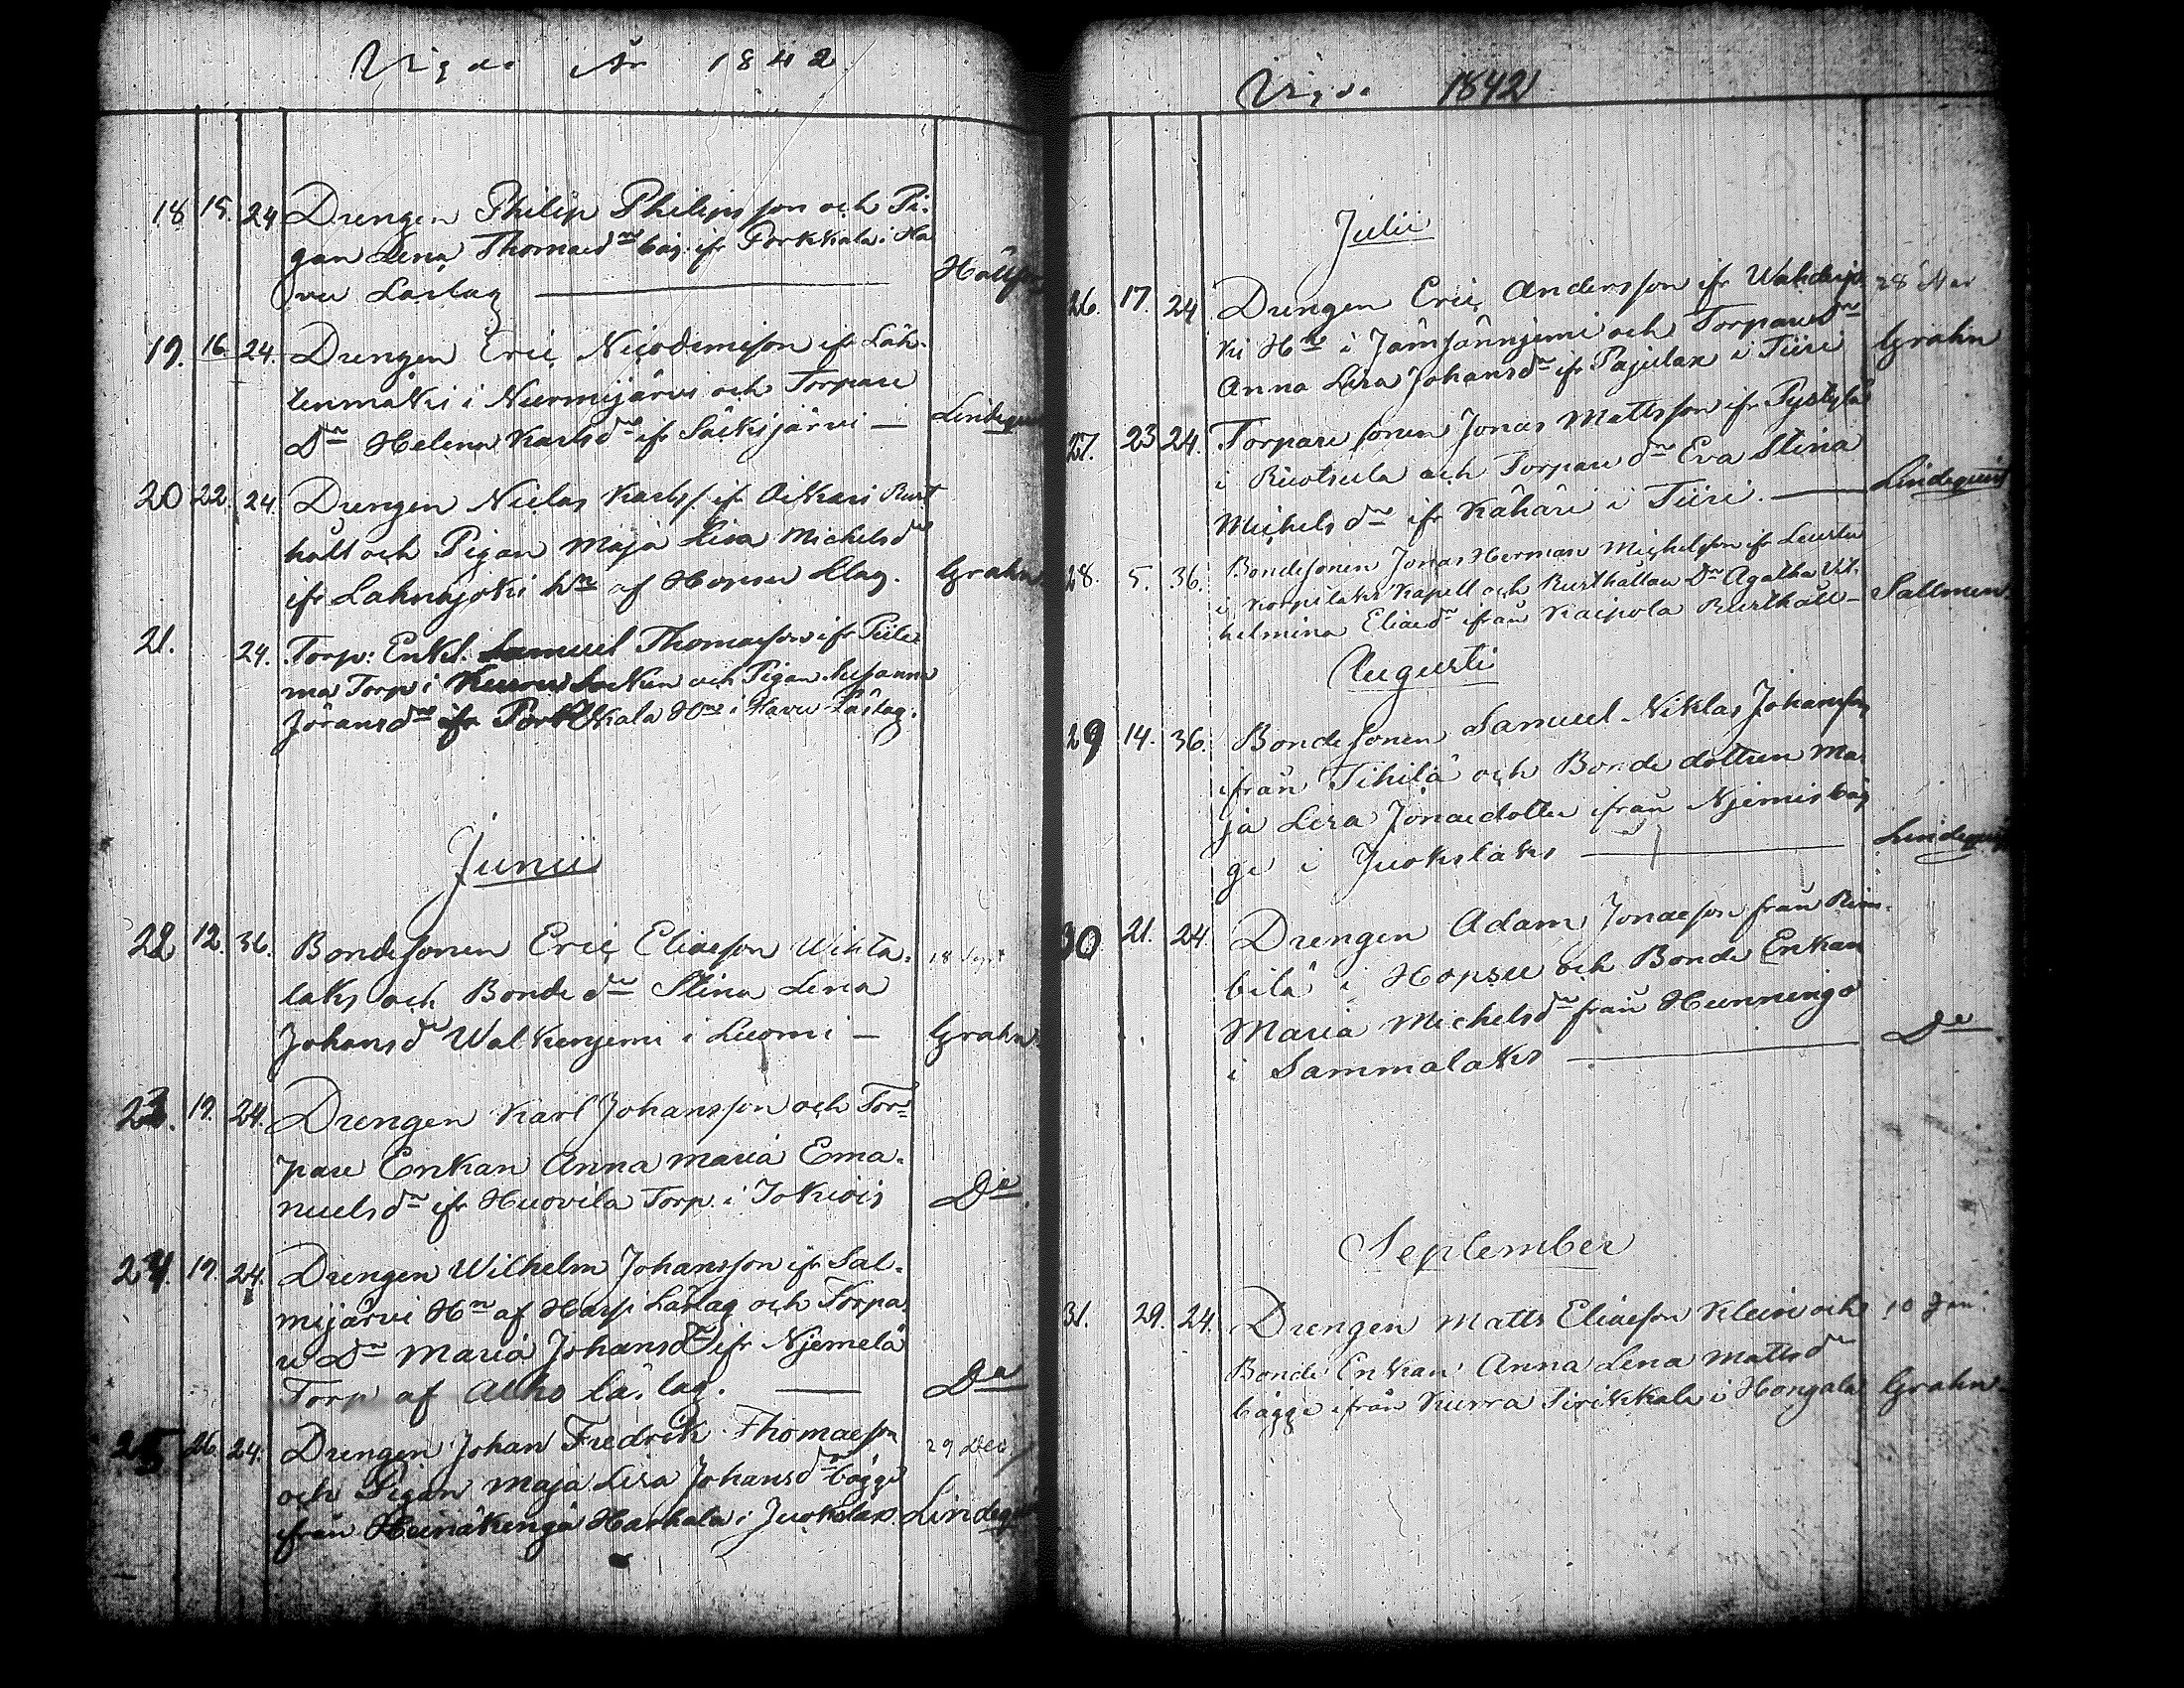 Vigde År 1842
18 15. 24 Drengen Philip Philipsson och Pi-
gan Lena Thomaedr båg. ifr Porkkala i Ha
vu Låstag
19. 16. 24. Drengen Eric Nicodemison ifr Läh-
tenmäki i Nurmijärvi och Torpare
Dr Helena Karlsdr ifr Säiksjärvi — Lindequist
20 22. 24. Drengen Niclas Karlss. ifr Oikari Rust
håll och Pigan Maja Lisa Michelsdr
ifr Lahnajoki Hn af Hopsu Llag. Grahn
21. 24. Torp: Enkl. Samuel Thomaeson ifr
ma Torp i Kuru Sockn och Pigan Susanna
Jöransdr ifr Porkkala Hn i Havu Låstag.
Junii
22 12. 36. Bondesonen Eric Eliaeson Wihta- 18 Sept
laks och Bonde dr Stina Lena
Johansdr Walkenjemi i Luomi — Grahn
23. 19. 24. Drengen Karl Johansson och Tor-
pare Enkan Anna Maria Ema-
nuelsdr ifr Huovila Torp. i Jokiois Do
24. 19. 24. Drengen Wilhelm Johansson ifr Sal-
mijärvi Hn af Harju Låstag och Torpa
re Dr Maria Johansdr ifr Njemelä
Torp af Alho Lå.tag. — Do
25 26. 24. Drengen Johan Fredrik Thomaeson 29 Dec.
och Pigan Maja Lisa Johansdr bägge
från Heinäkengä Harhala i Juokslax. Lindequist
Vigde 1842
Julii
26. 17. 24 Drengen Eric Andersson ifr 28
ki Hn i Jämsännjemi och Torparedr Grahn
Anna Lisa Johansdr ifr Pajulax i Tiiri
27. 23 24. Torpare sonen Jonas Mattsson ifr Pystylä
i Ruotsula och Torpare dr Eva Stina
Michelsdr ifr Kähäri i Tiiri. — Lindequist
28. 5. 36. Bondesonen Jonas Herman Michelsson ifr Leustu
i Korpilaks Kapell och Rusthållare Dr Agatha Vil-
helmina Eliaedr ifrån Kaipola Rusthåll — Sallmen
Augusti
29 14. 36. Bondesonen Samuel Niklas Johansson
ifrån Tihilä och Bonde dottren Ma-
ja Lisa Jonaedotter ifrån Njemis båg
ge i Juokslaks — Lindequist
30 21. 24. Drengen Adam Jonaeson från Rim-
bilä i Hopsu och Bonde Enkan
Maria Michelsdr från Hunningo
i Sammalaks — Do
September
31. 29. 24. Drengen Matts Eliaeson Klein och 10 Jan.
Bonde Enkan Anna Lena Mattsdr
bägge ifrån Kurra Sirkkala i Hongala Grahn